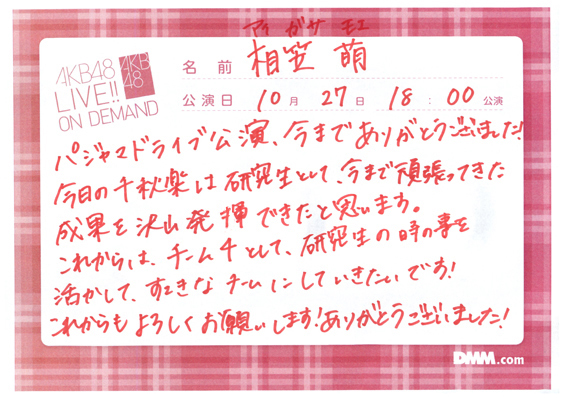 アイ ガサ モエ
AKB48
LIVE!!
ON DEMAND
AKB
48
名前 相笠 萌
公演日 10月 27日 18:00 公演
パジャマドライブ公演、今までありがとうございました!
今日の千秋楽は研究生として、今まで頑張ってきた
成果を沢山発揮できたと思います。
これからは、チーム4として、研究生の時の事を
活かして、すてきなチームにしていきたいです!
これからもよろしくお願いします!ありがとうございました!
DMM.com